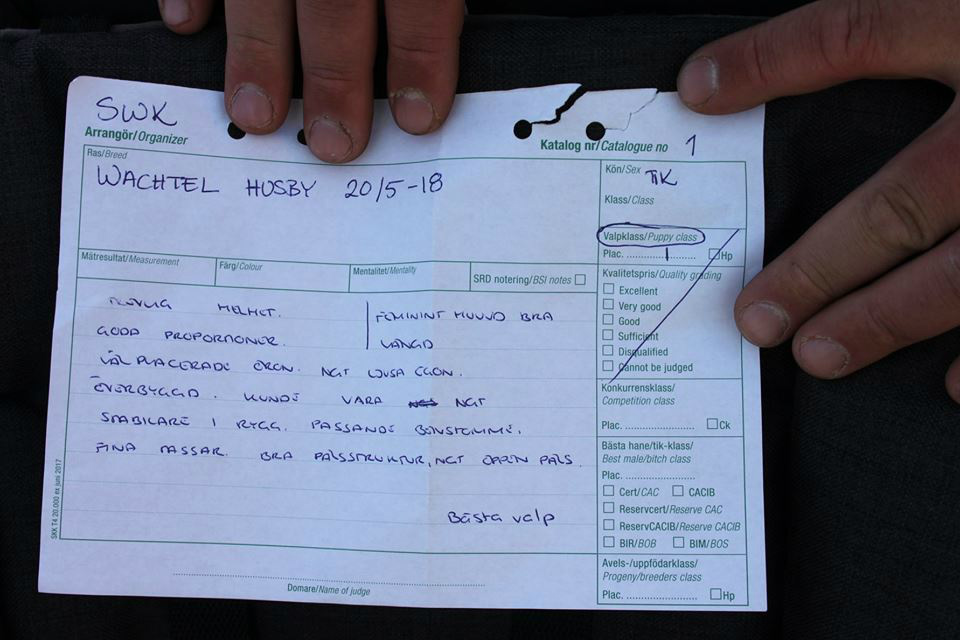 SWK
Arrangör/Organizer
Katalog nr/Catalogue no 1
Ras/Breed
WACHTEL HUSBY 20/5-18
Kön/Sex TIK
Klass/Class
Valpklass/Puppy class
Plac. 1 Hp
Mätresultat/Measurement
Färg/Colour
Mentalitet/Mentality
SRD notering/BSI notes
Kvalitetspris/Quality grading
Excellent
Very good
Good
Sufficient
Disqualified
Cannot be judged
TREVLIG HELHET.
GODA PROPORTIONER.
FEMININT HUVUD BRA
LÄNGD
VÄL PLACERADE ÖRON. NGT LJUSA ÖGON.
ÖVERBYGGD. KUNDE VARA NGT
STABILARE I RYGG. PASSANDE BENSTOMME.
FINA TASSAR. BRA PÄLSSTRUKTUR, NGT ÖPPEN PÄLS.
Bästa valp
Konkurrensklass/
Competition class
Plac. Ck
Bästa hane/tik-klass/
Best male/bitch class
Plac.
Cert/CAC CACIB
Reservcert/Reserve CAC
ReservCACIB/Reserve CACIB
BIR/BOB BIM/BOS
Avels-/uppfödarklass/
Progeny/breeders class
Plac. Hp
Domare/Name of judge
SKK T4 20.000 ex juni 2017